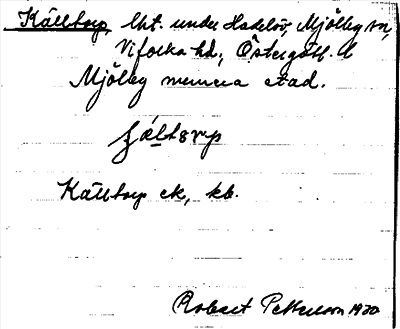 Källtorp lht. under Hadelöv, Mjölby sn,
Vifolka hd, Östergötl. l
Mjölby numera stad.
Källtorp ek, kb.
Robert Petterson 1930